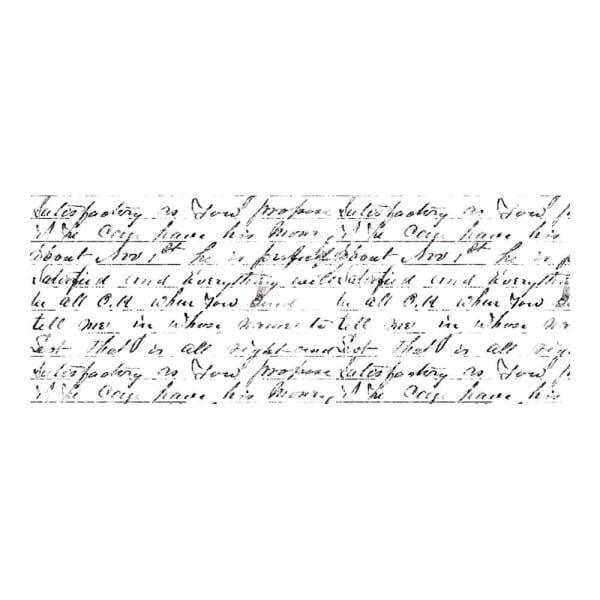 Satisfactory as You propose Satisfactory as You p
if he can have his Money, if he can have his
about Nov 1st he is perfectly about Nov 1st he is pe
Satisfied and Everything will Satisfied and Everythi
be all O.K when You Send be all O.K when You S
tell me in whose name to tell me in whose na
that is all right and that is all rig
Satisfactory as You propose Satisfactory as You p
if he can have his Money, if he can have his